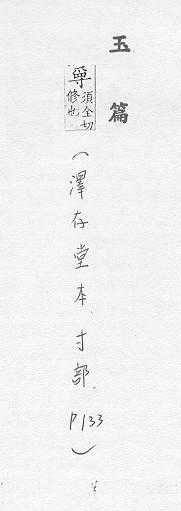 玉篇
須全切
修也
（澤存堂本、寸部、P133）